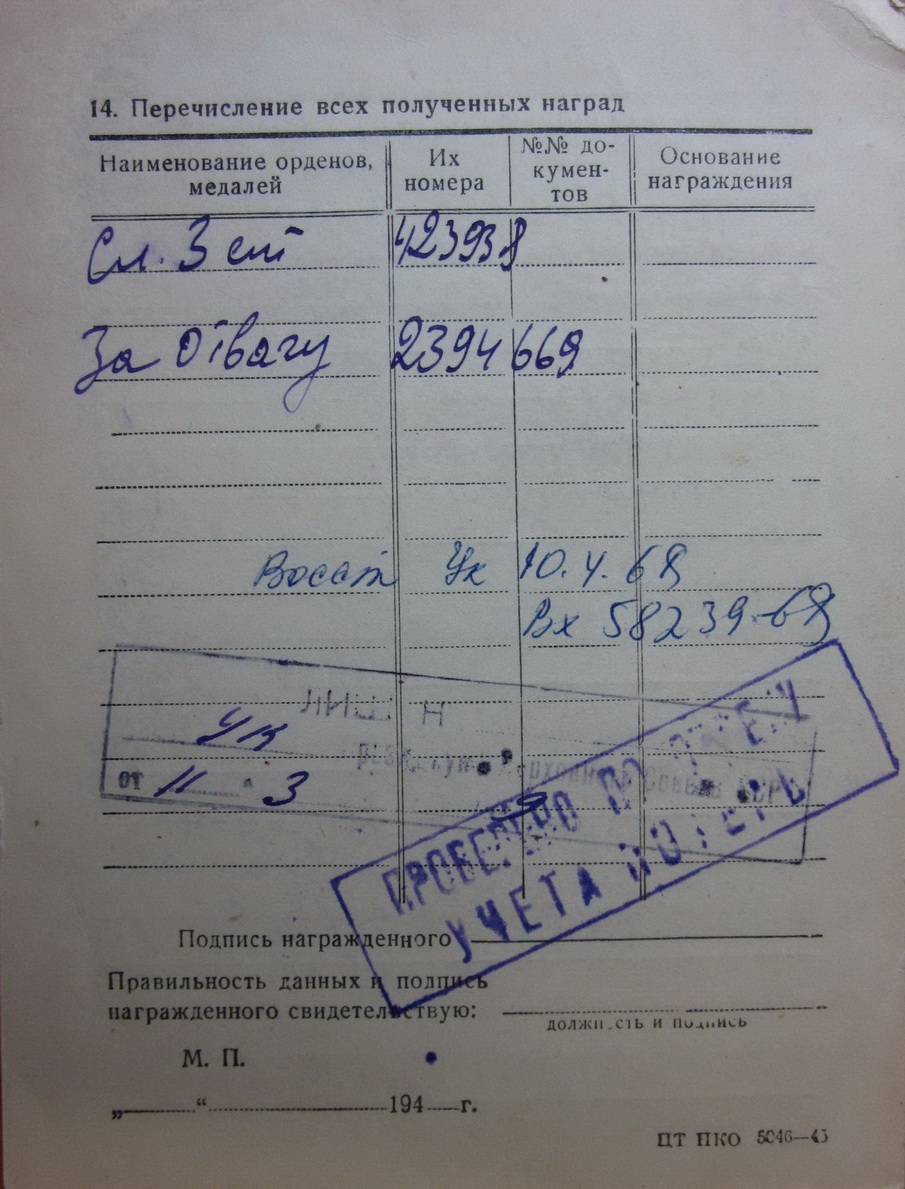 14. Перечисление всех полученных наград
Наименование орденов, медалей
Их номера
№№ документов
Основание награждения
Сл. 3 ст 423938
За Отвагу 2394669
Восст Ук 10.4.69
Вх 58239-69
Ук
от 11 3
ПРОВЕРЕНО ПО
УЧЕТА ПОТЕРЬ
Подпись награжденного
Правильность данных и подпись
награжденного свидетельствую:
должность и подпись
М. П.
„ “ 194 г.
ЦТ ПКО 5046—45